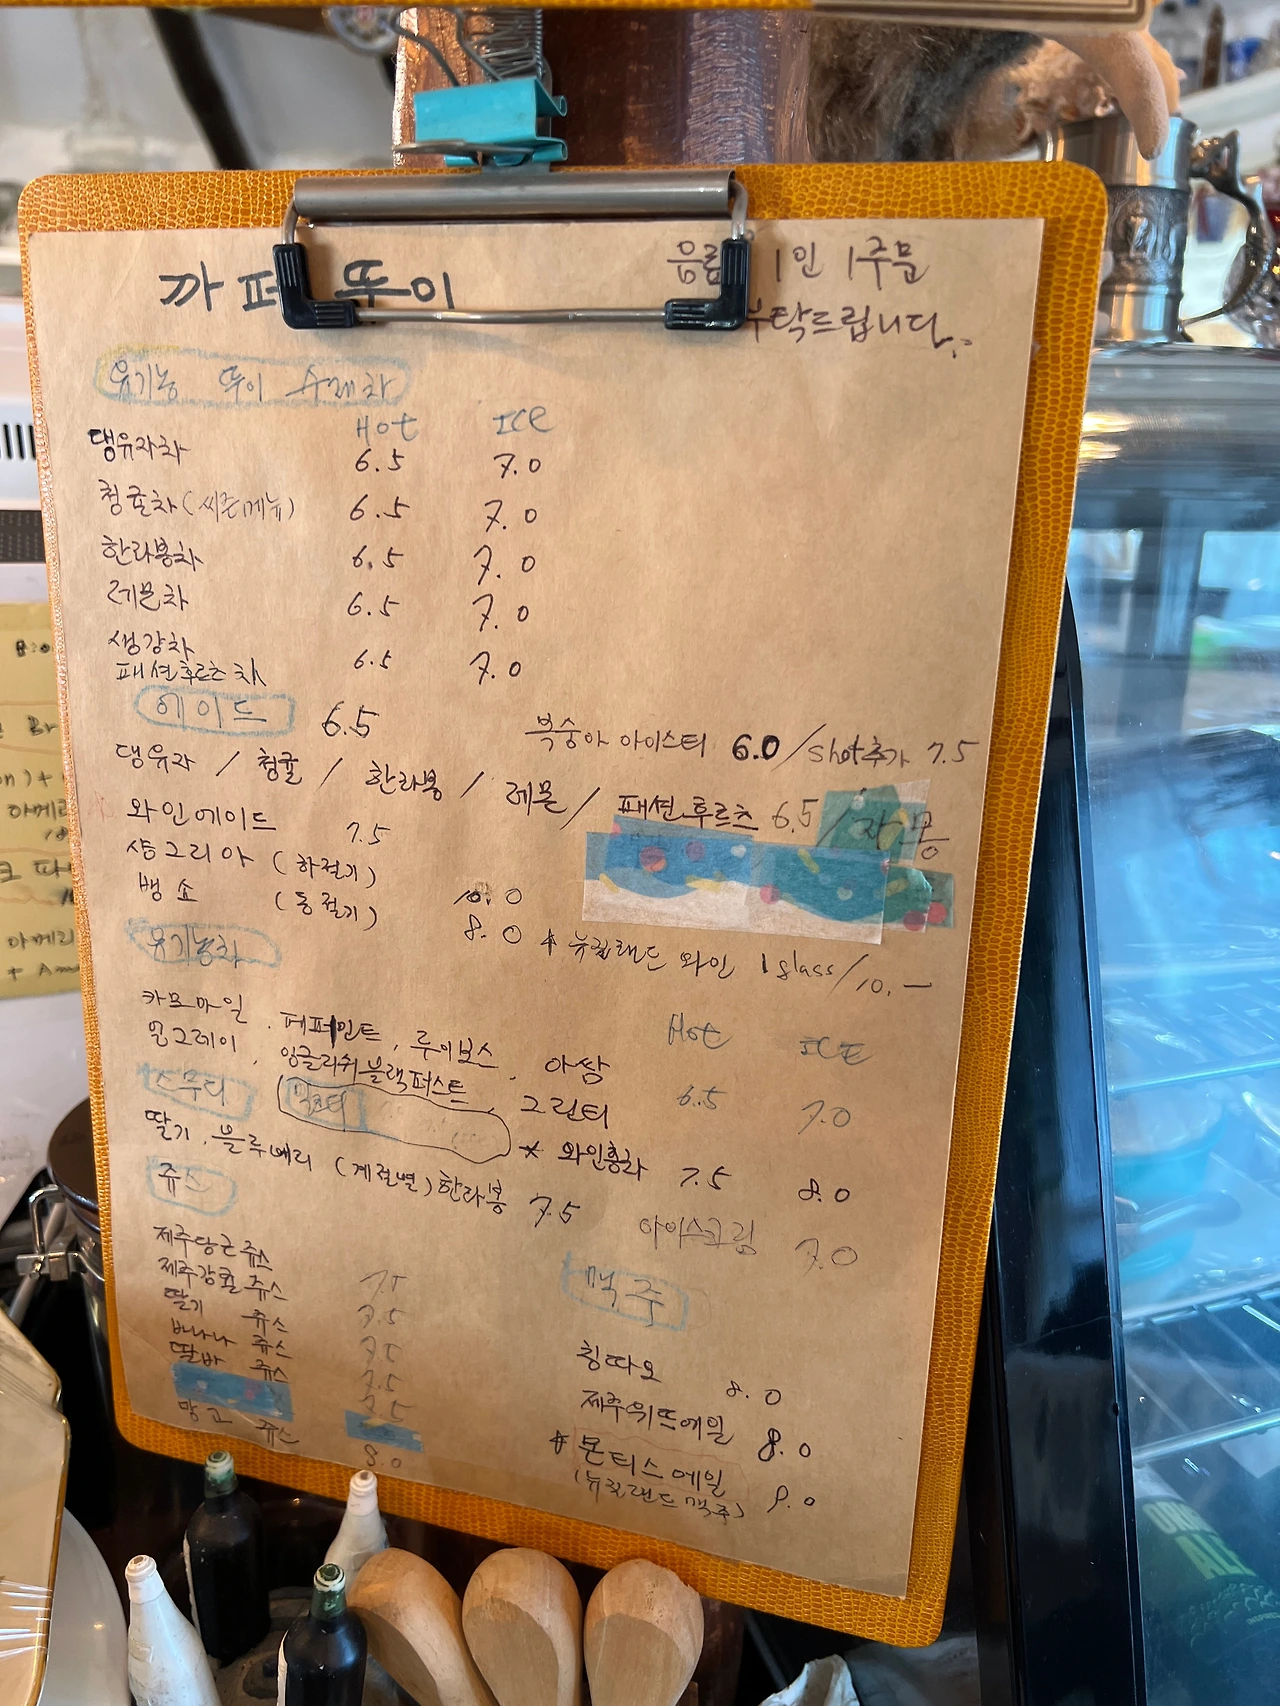 까페 뚜이
음료 1인 1주문
부탁드립니다.
유기농 뚜이 수제차
Hot ICE
댕유자차 6.5 7.0
청귤차(씨즌메뉴) 6.5 7.0
한라봉차 6.5 7.0
레몬차 6.5 7.0
생강차
패션후르츠차 6.5 7.0
에이드 6.5
복숭아 아이스티 6.0/shot추가 7.5
댕유자 / 청귤 / 한라봉 / 레몬 / 패션후르츠 6.5/자몽
와인에이드 7.5
샹그리아 (하절기) 10.0
뱅쇼 (동절기) 8.0
* 뉴질랜드 와인 1glass/10.-
유기농차
Hot ICE
카모마일, 페퍼민트, 루이보스, 아쌈
얼그레이, 잉글리쉬블랙퍼스트, 그린티 6.5 7.0
* 와인홍차 7.5 8.0
스무디
딸기, 블루베리 (계절별) 한라봉 7.5
아이스크림 7.0
쥬스
제주당근쥬스 7.5
제주감귤쥬스 7.5
딸기 쥬스 7.5
바나나 쥬스 7.5
딸바 쥬스 7.5
망고 쥬스 8.0
맥주
칭따오 8.0
제주위뜨에일 8.0
* 몬티스에일 9.0
(뉴질랜드 맥주)